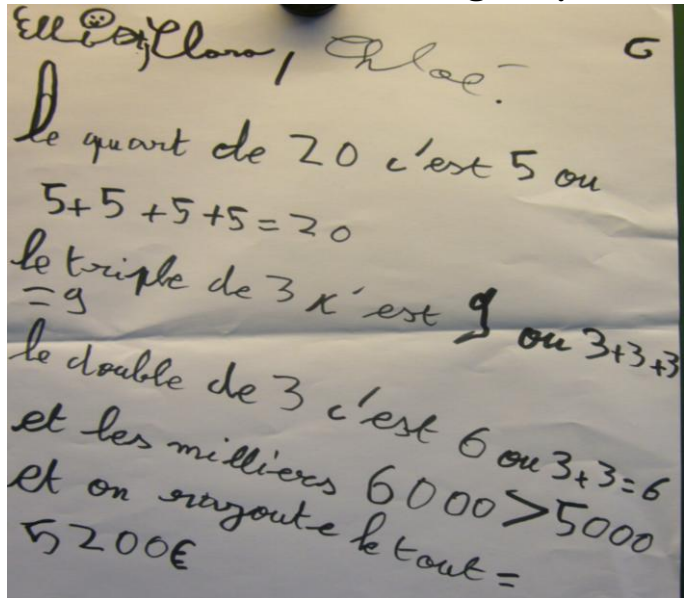 Elliot, Clara, Chloé. G
le quart de 20 c'est 5 ou
5+5+5+5=20
le triple de 3 c'est 9 ou 3+3+3
=9
le double de 3 c'est 6 ou 3+3=6
et les milliers 6000>5000
et on razoute le tout =
5200€